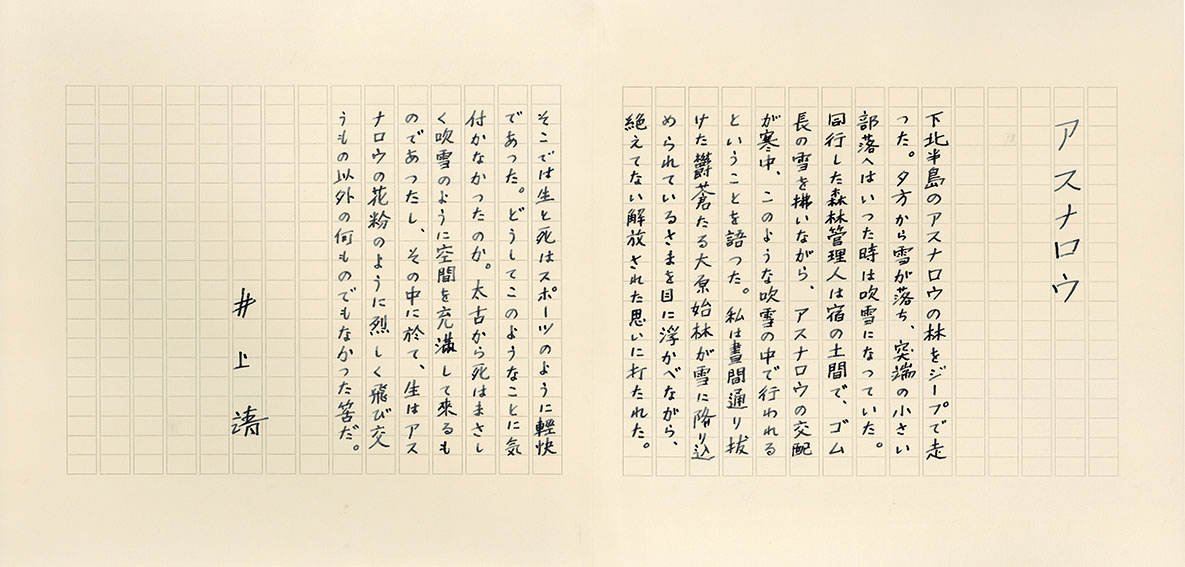 アスナロウ
下北半島のアスナロウの林をジープで走
った。夕方から雪が落ち、突端の小さい
部落へはいった時は吹雪になっていた。
同行した森林管理人は宿の土間で、ゴム
長の雪を拂いながら、アスナロウの交配
が寒中、このような吹雪の中で行われる
ということを語った。私は晝間通り拔
けた欝蒼たる大原始林が雪に降り込
められているさまを目に浮かべながら、
絶えてない解放された思いに打たれた。
そこでは生と死はスポーツのように輕快
であった。どうしてこのようなことに気
付かなかつたのか。太古から死はまさし
く吹雪のように空間を充満して來るも
のであつたし、その中に於て、生はアス
ナロウの花粉のように烈しく飛び交
うもの以外の何ものでもなかつた筈だ。
井上靖